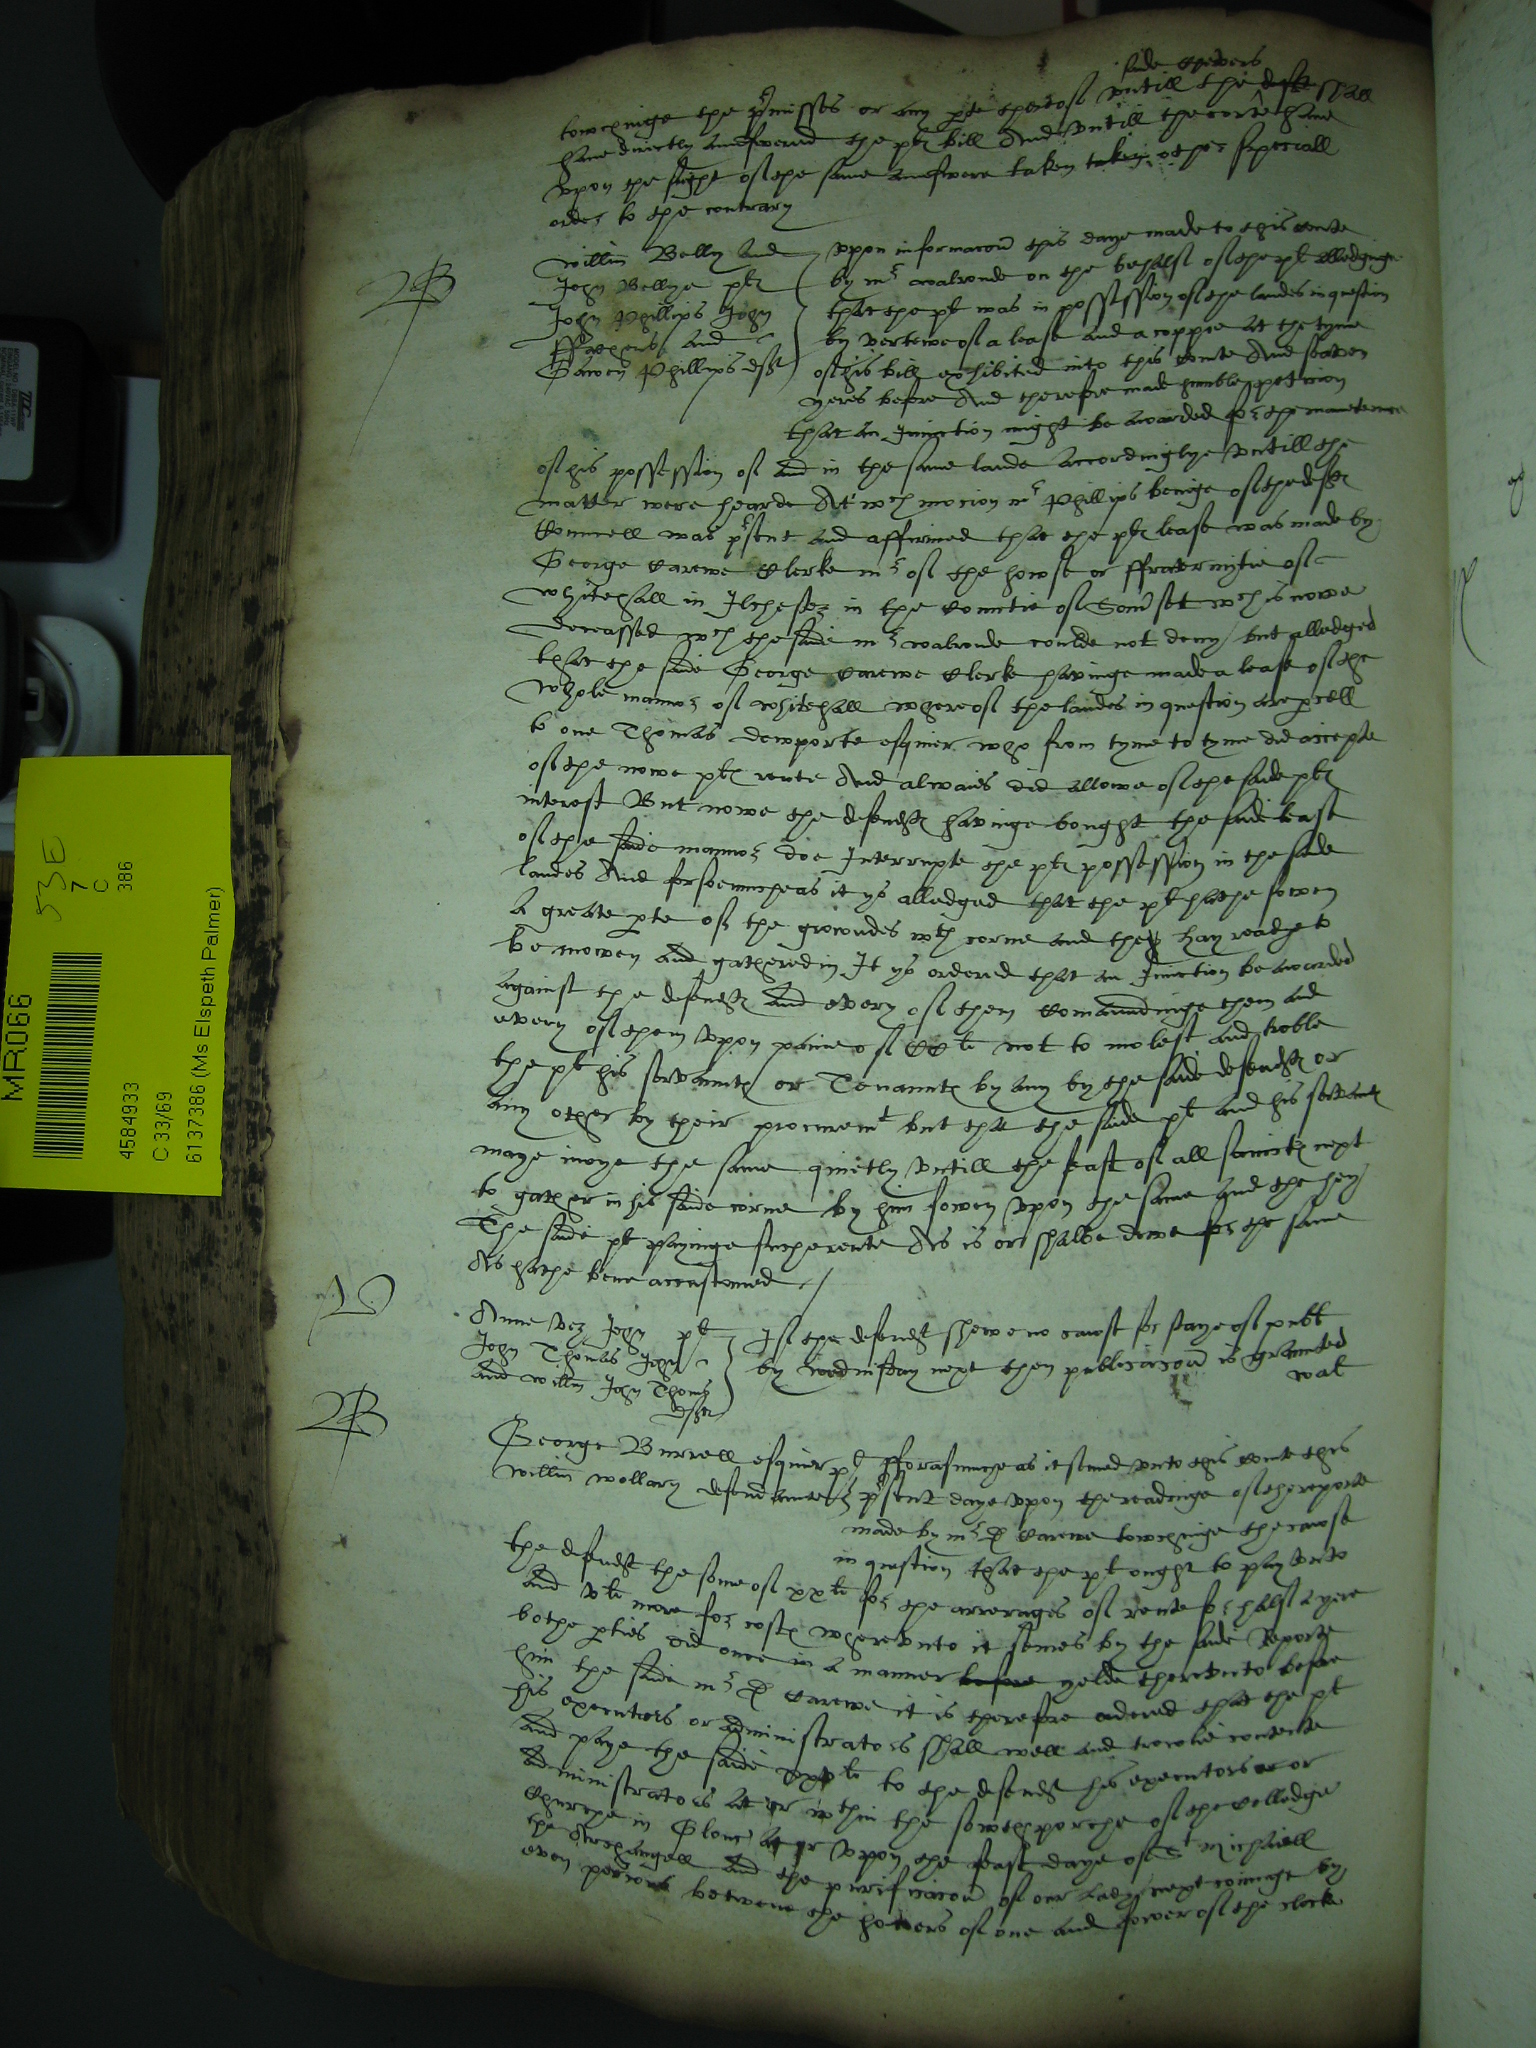 saide Grevers
towchinge the p'misses or any p'te thereof vntill the deft shall
have directly answered the pltes bill And vntill the corte have
vpon the sighte of the same answere taken taken other speciall
order to the contrary
B
Willm Belly and
John Bellye pltes
John Phillips John
and
Gawen Phillips deftes
vppon informacon this daye made to this corte
by mr walronde on the behalf of the plt alledginge
that the plt was in possession of the landes in question
by vertewe of a lease and a coppie at the tyme
of his bill exhibited into this corte And seaven
yeres before And therefore made humble peticion
that an Iniunction might be awarded for the mayntenance
of his possession of and in the same lande accordinglye vntill the
matter were hearde At wch mocion mr Phillips beinge of the deftes
Councell was p'sent and affirmed that the pltes lease was made by
George Carewe Clerke mr of the howse or ffraternitie of
Whitehall in Ilchester in the Countie of Som'set wch is nowe
deceassed wch the saide mr walronde coulde not deny but alledged
that the saide George Carewe Clerke havinge made a lease of the
whole mannor of whitehall whereof the landes in question are p'cell
to one Thomas Dewporte esquier who from tyme to tyme did accepte
of the nowe pltes rente And alwaies did allowe of the saide pltes
interest But nowe the defendtes havinge bought the saide lease
of the saide mannor doe Interrupte the pltes possession in the saide
landes And forsomuche as it ys alledged that the plt hathe sowen
a greate p'te of the growndes wth corne and the hay readye to
be mowen and gathered in It ys ordered that an Iniunction be awarded
against the defendtes and every of them Comaundinge them and
every of them vpon paine of CCli not to molest and troble
the plt his servauntes or Tenauntes by any by the saide defendtes or
any other by their procuremt but that the saide plt and his servantes
maye inioye the same quietly vntill the feast of all saintes next
to gather in his saide corne by him sowen vpon the same and the hey
The saide plt payinge suche rente As is or shalbe dewe for the same
As hathe bene accustomed
Anne verz John plt
John Thomas John
and Willm John Thomas
deftes
If the defendt shewe no cause for staye of publ
by wednisday next then publicacon is graunted
wal
B
George Burrell esquier plt
Willm wollary defendaunte
fforasmuche as it semed vnto this corte this
p'sent daye vpon the readinge of the reporte
made by mr D Carewe towchinge the cause
in question that the plt ought to pay vnto
the defendt the some of xxli for the arrerages of rente for half a yere
and vli more for costes wherevnto it semes by the saide Reporte
bothe p'ties did once in a manner before yelde therevnto before
him the saide mr D Carewe it is therefore ordered that the plt
his executors or administrators shall well and trewlie contente
and paye the saide xxvli to the defendt his executors or or
administrators at or wthin the sowth porche of the Colledge
Churche in Glouc' at or vppon the feast daye of St Michaell
the Archangell and the purificacon of our Lady next cominge by
even porcons betwene the howers of one and fower of the clocke
MR066
53E
7
C
386
4584933
C 33/69
6137386 (Ms Elspeth Palmer)